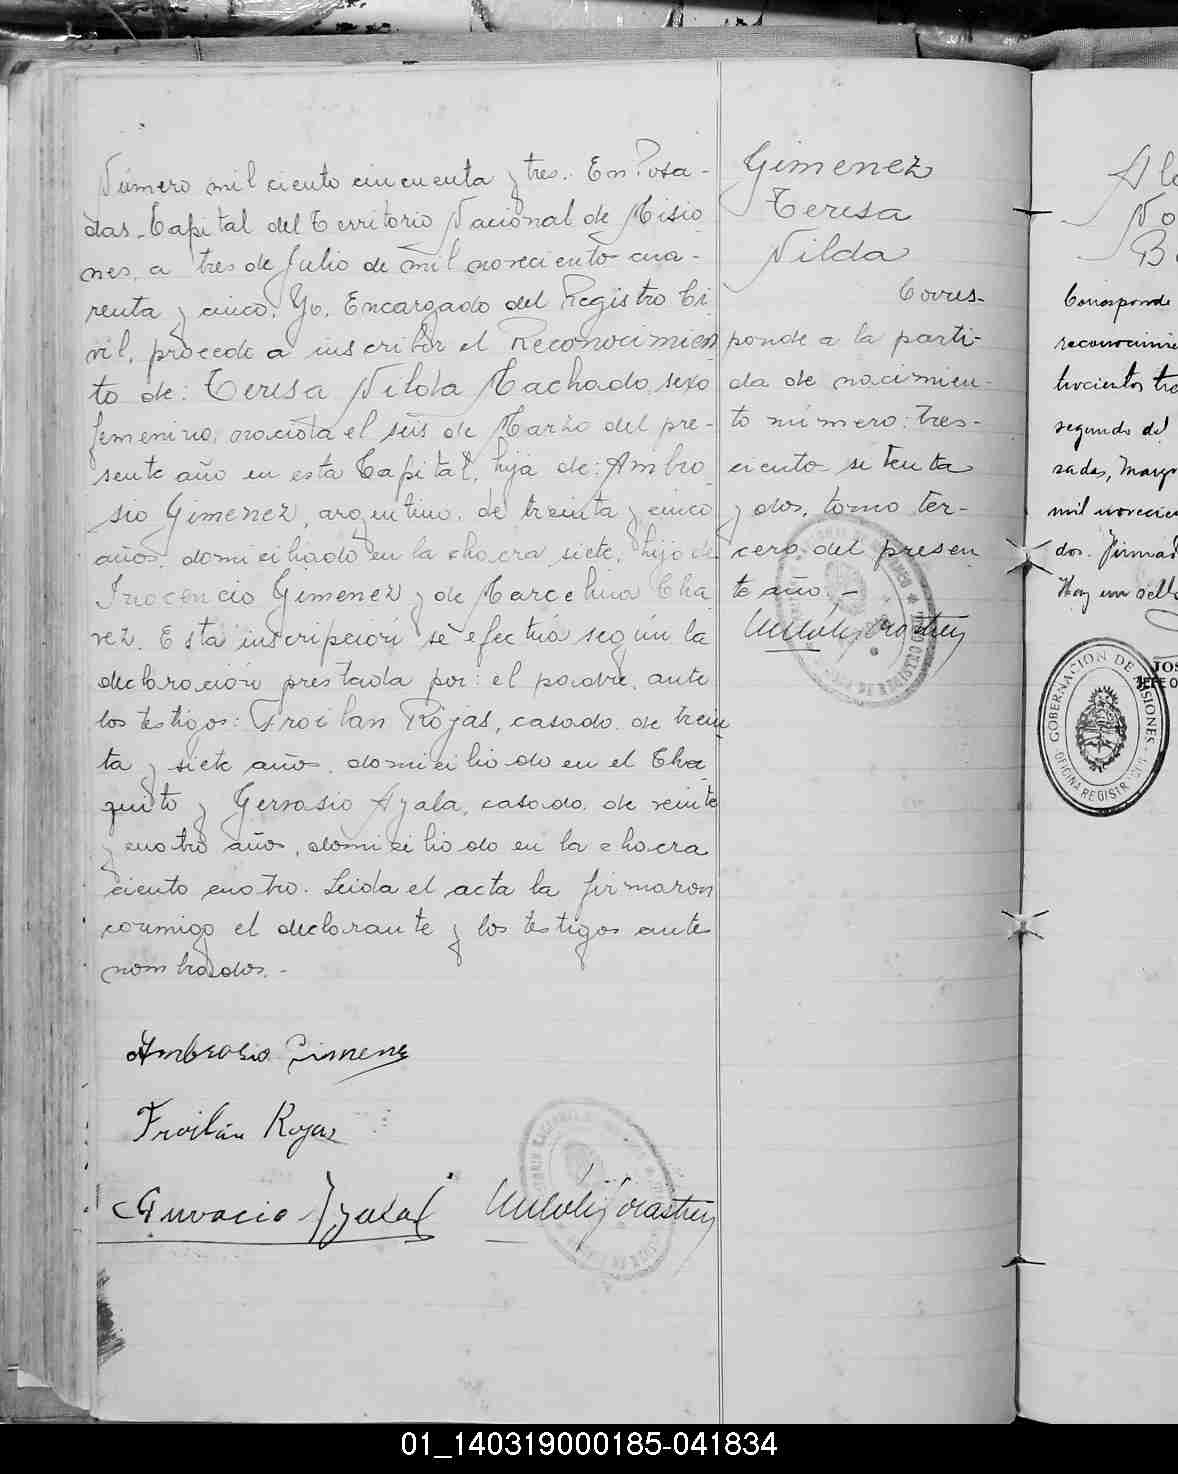 Número mil ciento cincuenta y tres. En Posa-
das, Capital del Territorio Nacional de Misio
nes, a tres de Julio de mil novecientos cua-
renta y cinco. Yo, Encargado del Registro Ci
vil, procedo a inscribir el Reconocimien
to de: Teresa Nilda Machado, sexo
femenino, nacida el seis de Marzo del pre-
sente año en esta Capital, hija de: Ambro
sio Gimenez, argentino, de treinta y cinco
años, domiciliado en la chacra siete, hijo de
Inocencio Gimenez y de Marcelina Cha
vez. Esta inscripción se efectúa según la
declaración prestada por: el padre, ante
los testigos: Froilan Rojas, casado, de trein
ta y siete años, domiciliado en el Cha
quito y Gervasio Ayala, casado, de veinte
y cuatro años, domiciliado en la chacra
ciento cuatro. Leida el acta la firmaron
conmigo el declarante y los testigos ante
nombrados.-
Ambrosio Gimenez
Froilán Rojas
Gervacio Ayala
Gimenez
Teresa
Nilda
Corres-
ponde a la parti-
da de nacimien-
to número: tres-
ciento setenta
y dos, tomo ter-
cero del presen
te año.-
Corresponde
segundo del
sadas, Marzo
Hay un sello
GOBERNACION DE MISIONES
OFICINA REGISTR
01_140319000185-041834